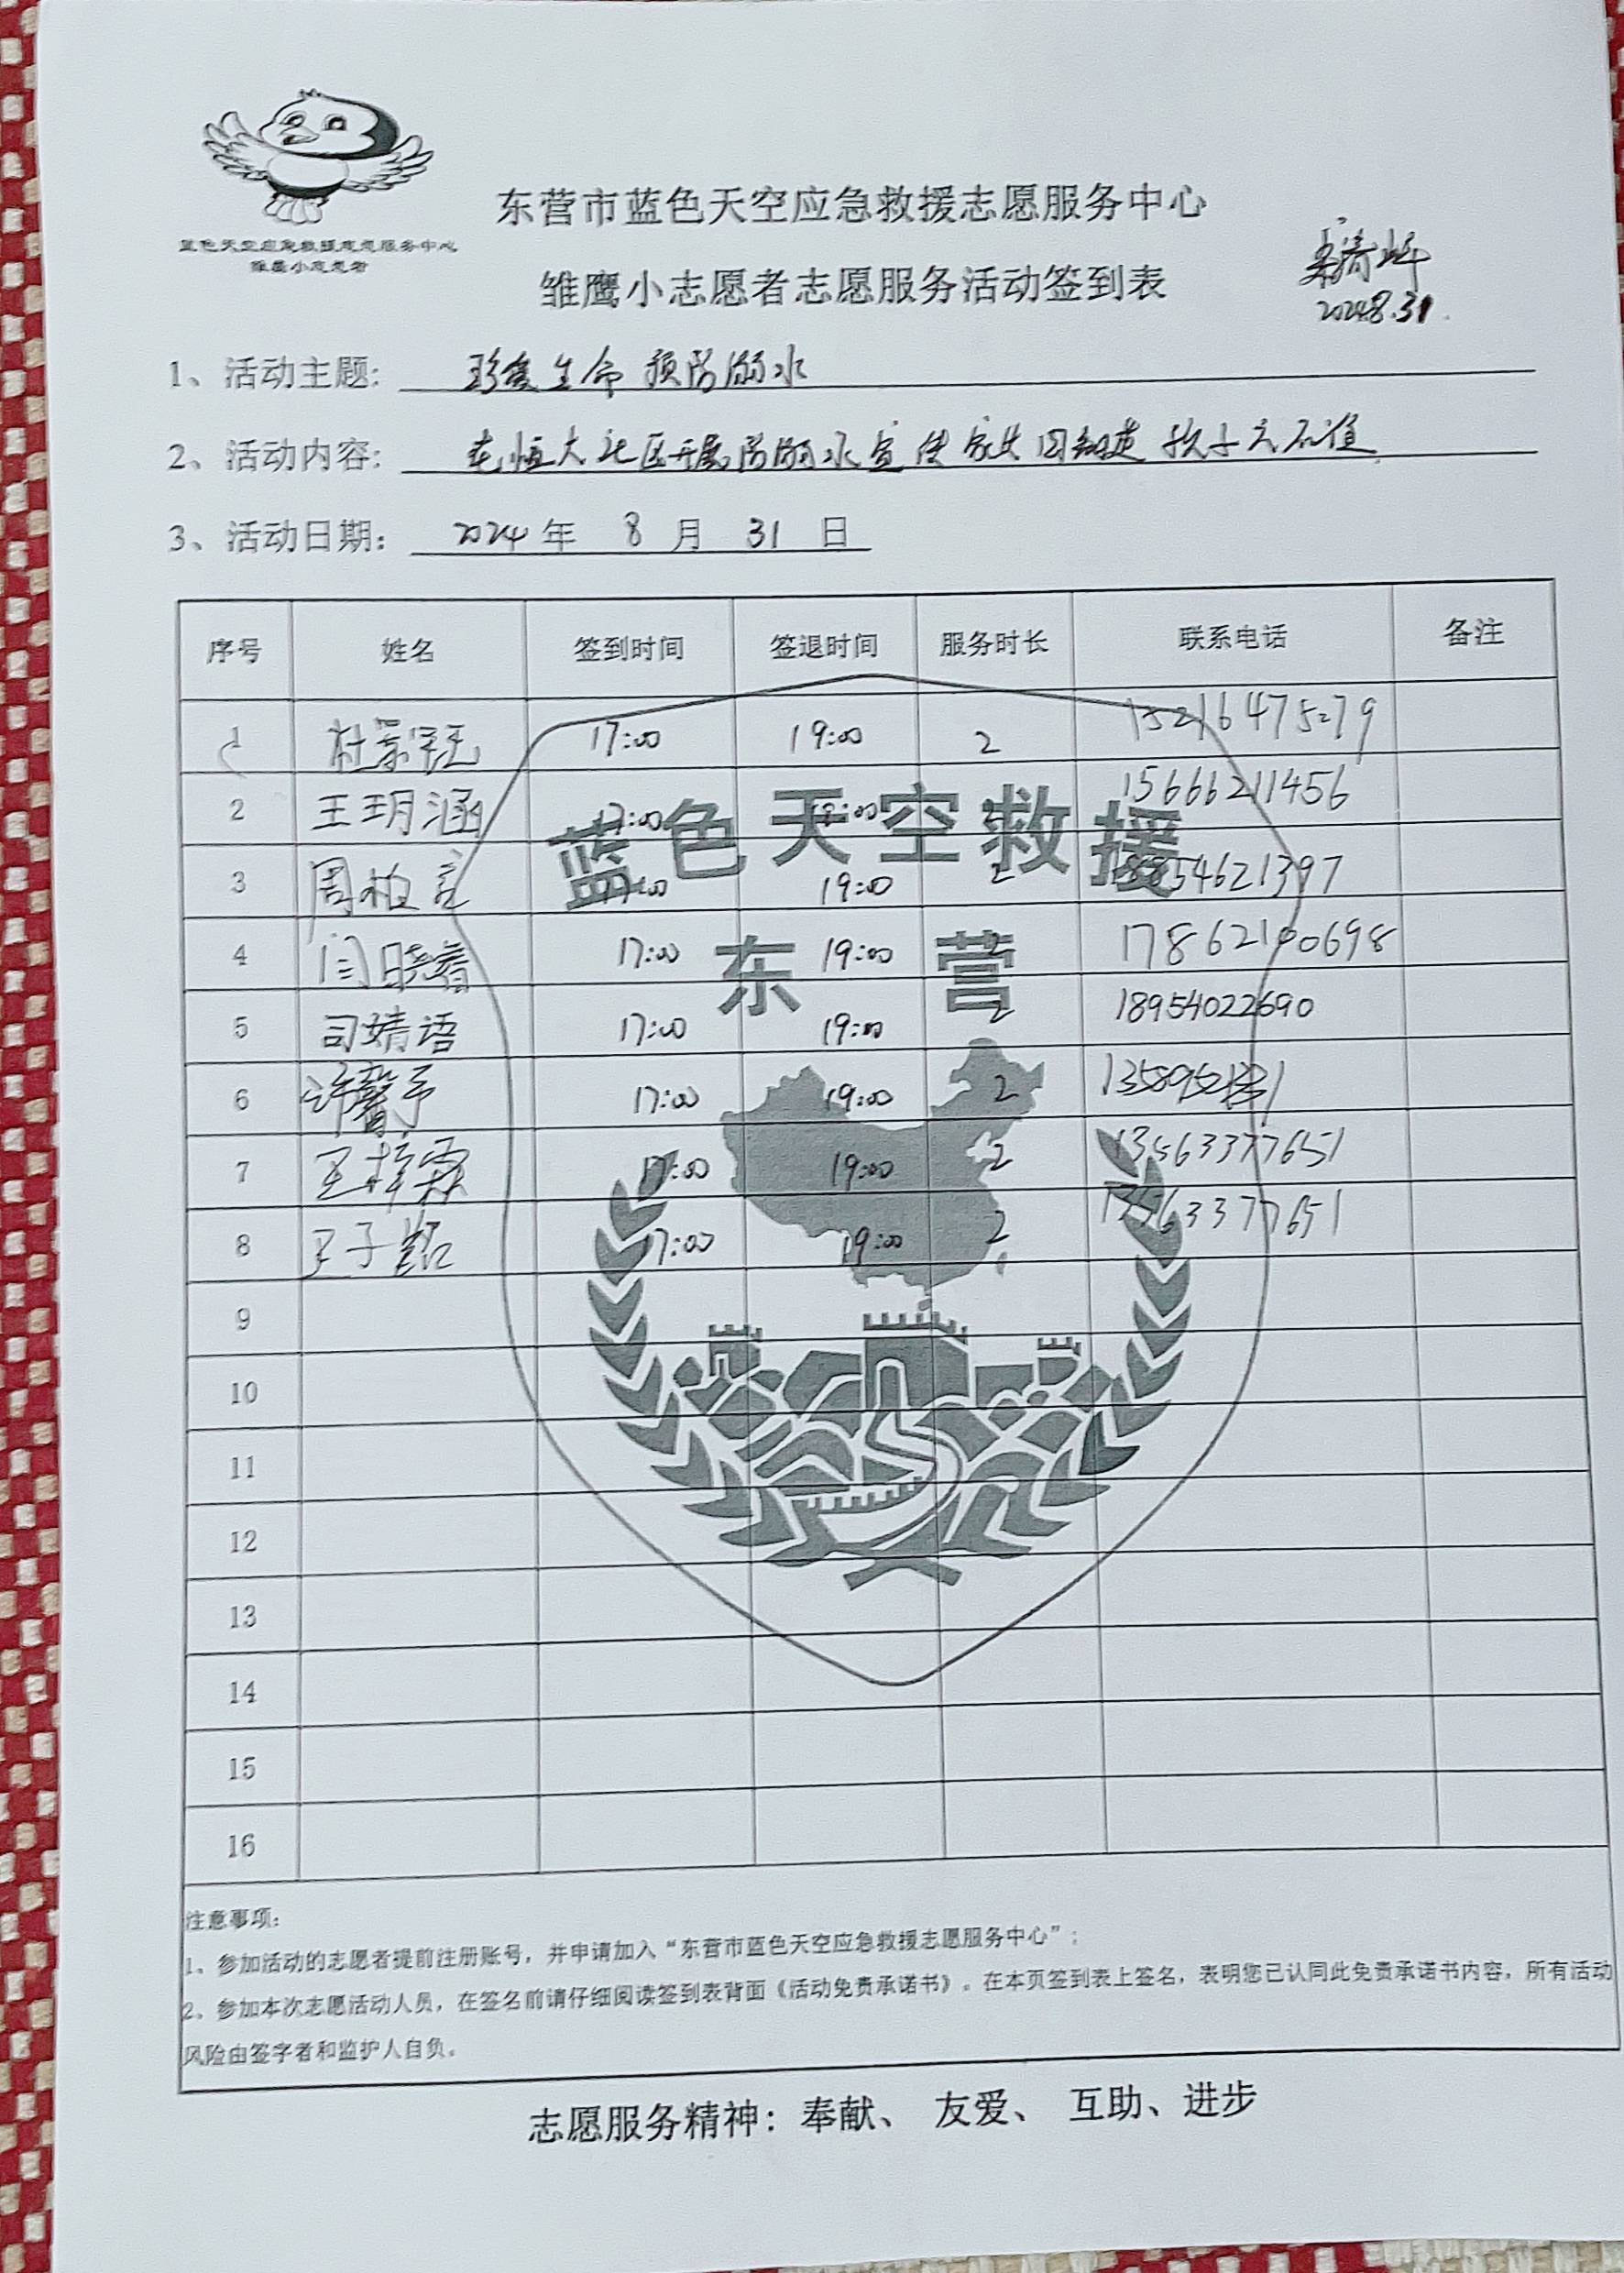 蓝色天空应急救援志愿服务中心
雏鹰小志愿者
东营市蓝色天空应急救援志愿服务中心
雏鹰小志愿者志愿服务活动签到表
2024.8.31
1、活动主题: 珍爱生命 预防溺水
2、活动内容: 在恒大社区开展防溺水宣传 孩子六不准
3、活动日期: 2024 年 8 月 31 日
序号 姓名 签到时间 签退时间 服务时长 联系电话 备注
1 17:00 19:00 2 15216475279
2 王玥涵 17:00 19:00 15666211456
3 周柏 17:00 19:00 2 54621397
4 闫晓睿 17:00 19:00 17862190698
5 司婧语 17:00 19:00 2 18954022690
6 许馨予 17:00 19:00 2
7 王梓霖 17:00 19:00 2 13563377651
8 王子铭 17:00 19:00 2 13563377651
9
10
11
12
13
14
15
16
蓝色天空救援
东营
注意事项:
1、参加活动的志愿者提前注册账号，并申请加入“东营市蓝色天空应急救援志愿服务中心”;
2、参加本次志愿活动人员，在签名前请仔细阅读签到表背面《活动免责承诺书》。在本页签到表上签名，表明您已认同此免责承诺书内容，所有活动
风险由签字者和监护人自负。
志愿服务精神: 奉献、 友爱、 互助、进步